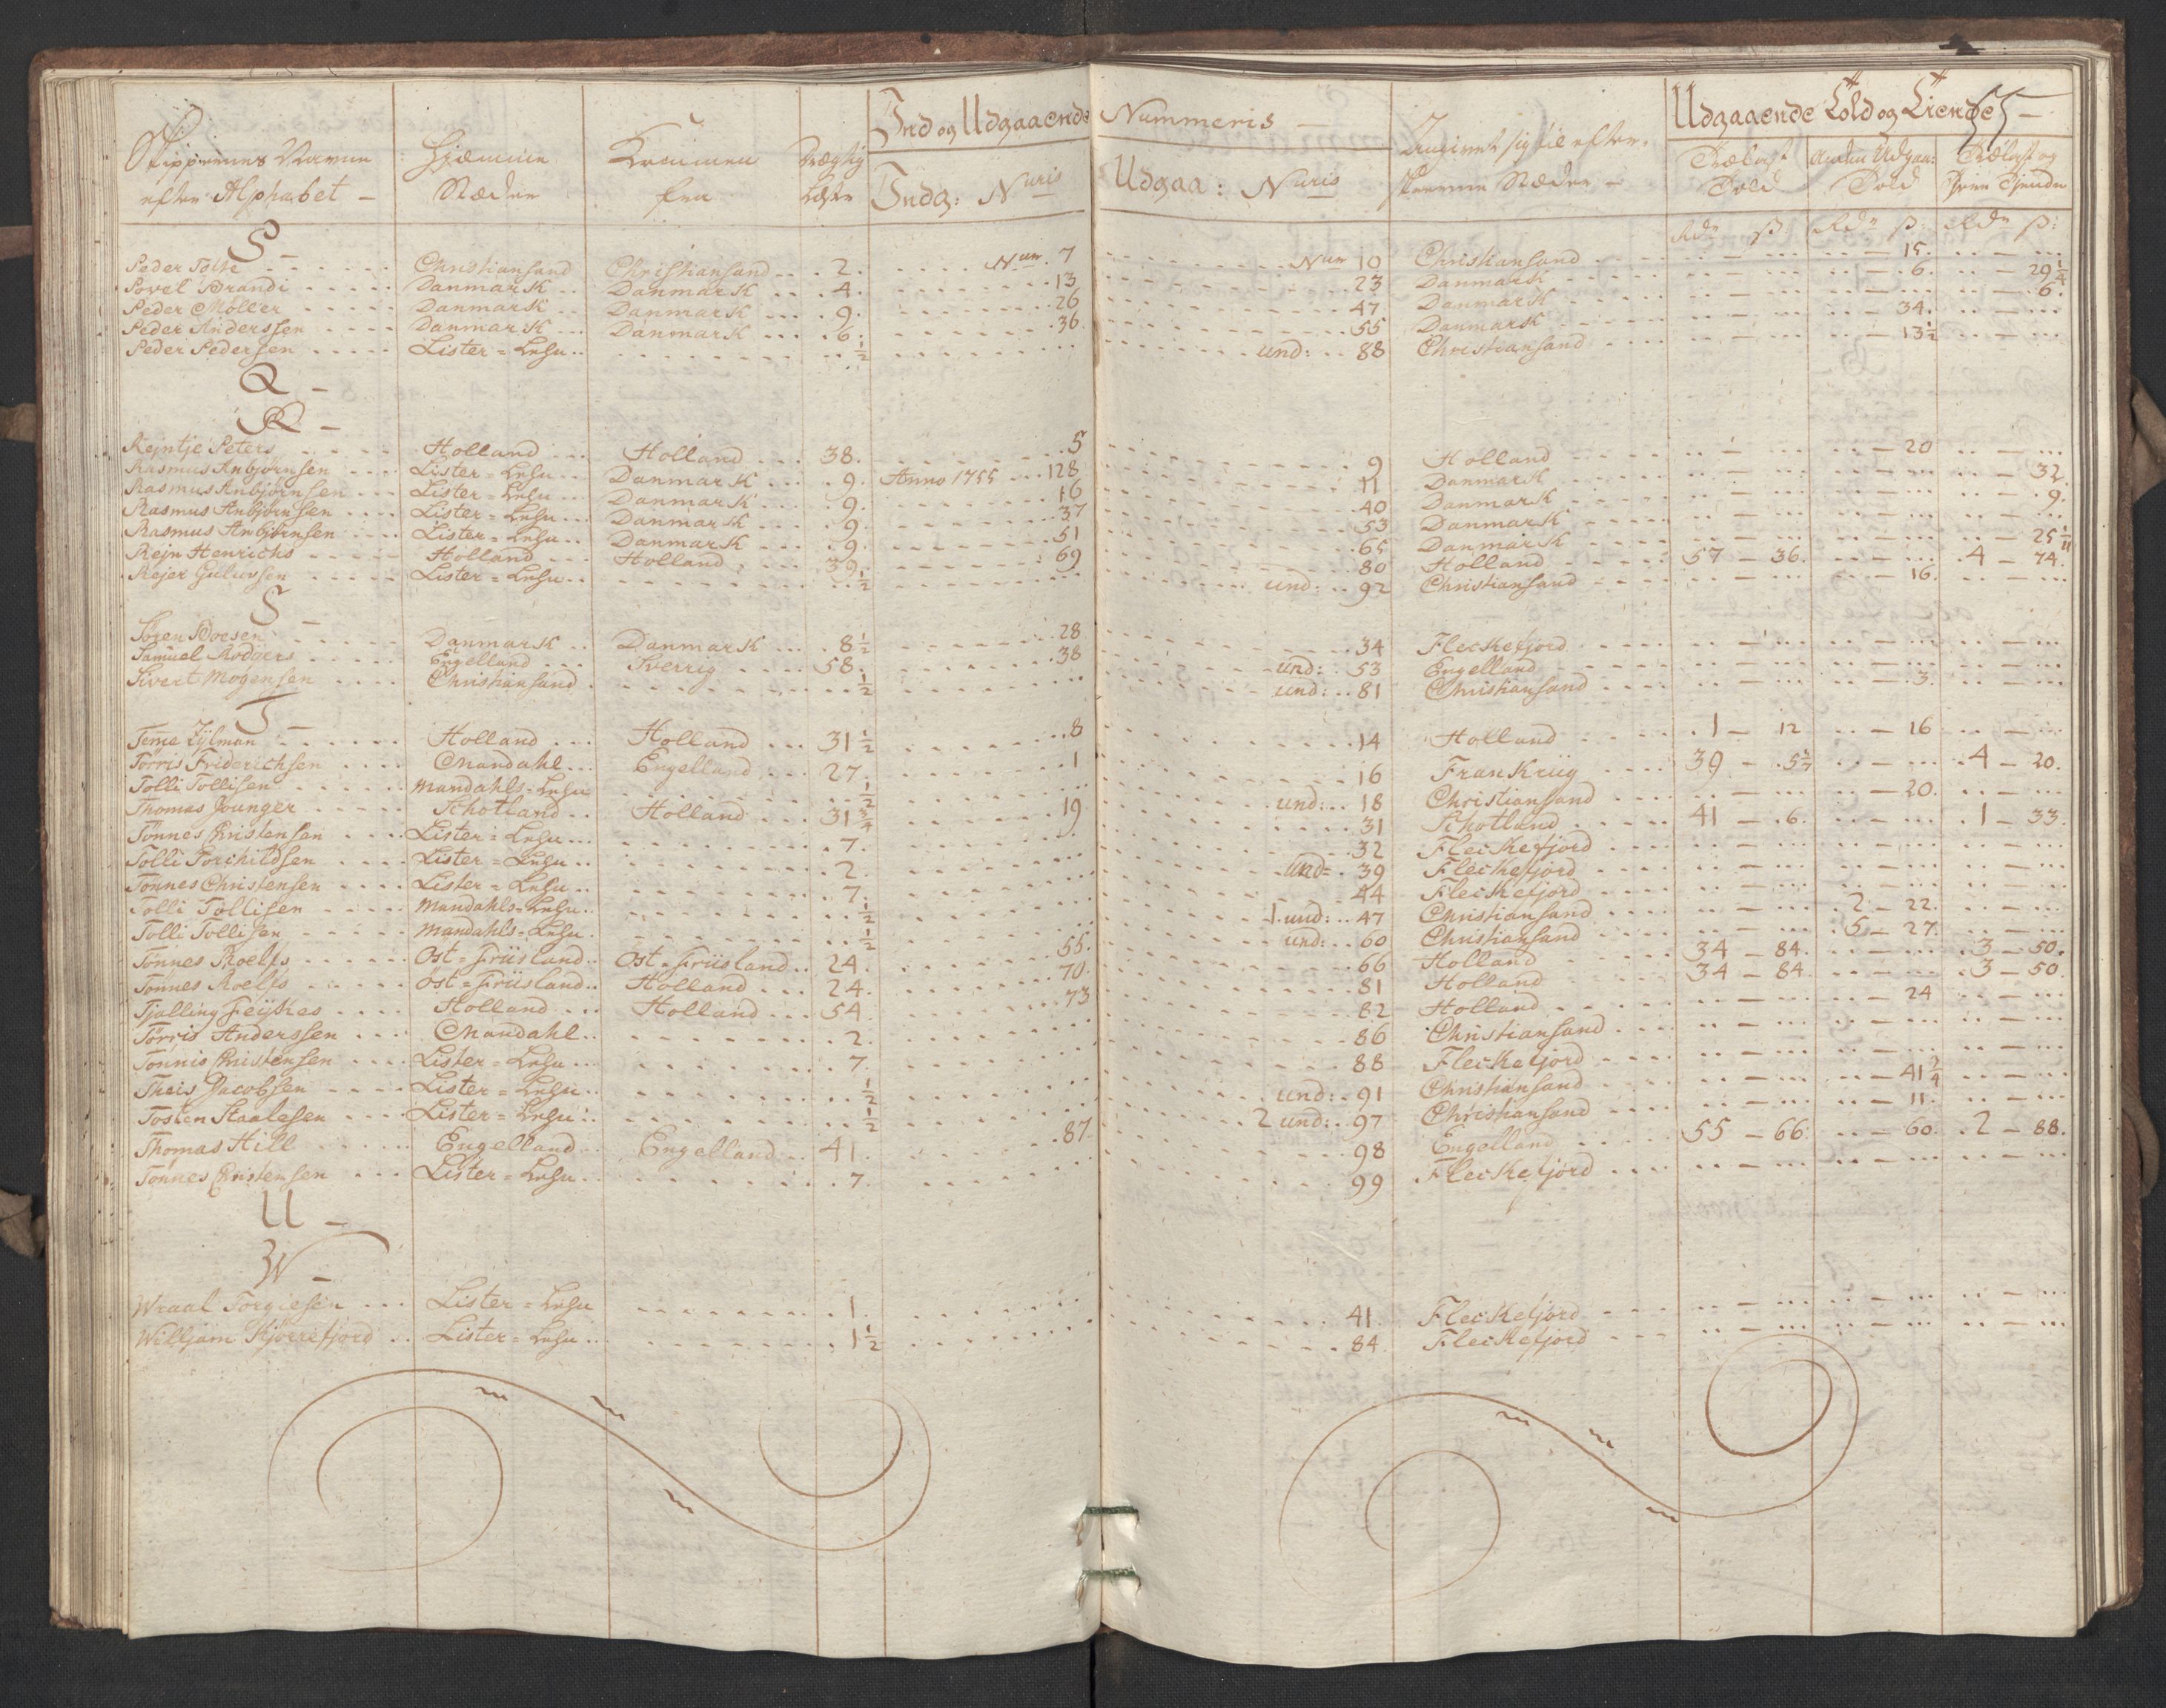 Ind og Udgaaende Nummeris — Udgaaende Told og Tiende — 55
Skippernes Navne efter Alphabet — Hjemme Stæder Kommen fra Drægtig Læster Indg: Nuris Udgaa: Nuris Angivet sig til efterskrevne Stæder — Trælast Told Anden Udgaa: Told Trælast og Tiende
Rdr ß: Rdr ß: Rdr ß:
P —
Peder Tolte Christiansand Christiansand 2. Num. 7 Num 10 Christiansand .. — ... .. — 15. .. — ...
Povel Brandi Danmark Danmark 4. 13 23 Danmark .. — ... .. — 6. .. — 29 1/4
Peder Möller Danmark Danmark 9. 26 47 Danmark .. — ... .. — ... .. — 6.
Peder Anderssen Danmark Danmark 6. 36. 55 Danmark .. — ... .. — 34. .. — ...
Peder Pedersen Lister = Lehn 1/2 und: 88 Christiansand .. — ... .. — 13 1/2 .. — ...
Q —
R —
Rejntje Peters Holland Holland 38. 5 9 Holland .. — ... .. — 20 .. — ...
Rasmus Anbjørnsen Lister = Lehn Danmark 9. Anno 1755 128 11 Danmark .. — ... .. — ... .. — 32.
Rasmus Anbjørnsen Lister = Lehn Danmark 9. 16 40 Danmark .. — ... .. — ... .. — 9.
Rasmus Anbjørnsen Lister = Lehn Danmark 9. 37 53 Danmark .. — ... .. — ... .. — ...
Rasmus Anbjørnsen Lister = Lehn Danmark 9. 51 65 Danmark .. — ... .. — ... .. — 25
Rejn Henrichs Holland Holland 39. 69 80 Holland 57 — 36. .. — ... 4 — 74.
Rejer Gulussen Lister = Lehn 1/2 und: 92 Christiansand .. — ... .. — 16. .. — ...
S
Søren Boesen Danmark Danmark 8 1/2 28 34 Fleckefjord .. — ... .. — ... .. — ...
Samuel Rodgers Engelland Sverrig 58. 38 und: 53 Engelland .. — ... .. — ... .. — ...
Sivert Mogensen Christiansand 1/2 und: 81 Christiansand .. — ... .. — 3. .. — ...
T —
Teme Zylman Holland Holland 31 1/2 8 14 Holland 1 — 12 .. — 16 .. — ...
Torris Friderichsen Mandahl Engelland 27. 1 16 Frankriig 39 — 5 1/2 .. — ... 4 — 20.
Tolli Tollisen Mandahls = Lehn 1/2 und: 18 Christiansand .. — ... .. — 20. .. — ...
Thomas Younger Schotland Holland 31 3/4 19 31 Schotland 41 — 6. .. — ... 1 — 33.
Tønnes Christensen Lister = Lehn 7. 32 Fleckefjord .. — ... .. — ... .. — ...
Tolli Torchildsen Lister = Lehn 2. und: 39 Fleckefjord .. — ... .. — ... .. — ...
Tønnes Christensen Lister = Lehn 7. 44 Fleckefjord .. — ... .. — ... .. — ...
Tolli Tollisen Mandahls = Lehn 1/2 1. und: 47 Christiansand .. — ... 2 — 22. .. — ...
Tolli Tollisen Mandahls = Lehn 1/2 und: 60 Christiansand .. — ... 5 — 27. .. — ...
Tønnes Roelfs Ost = Friisland Ost = Friisland 24. 55. 66 Holland 34 — 84. .. — ... 3 — 50.
Tønnes Roelfs Ost = Friisland Holland 24. 70. 81 Holland 34 — 84. .. — ... 3 — 50.
Tjalling Feijkes Holland Holland 54. 73 82 Holland .. — ... .. — 24 .. — ...
Torris Anderssen Mandahl 2. 86 Christiansand .. — ... .. — ... .. — ...
Tønnis Christensen Lister = Lehn 7. 88 Fleckefjord .. — ... .. — ... .. — ...
Theis Jacobsen Lister = Lehn 1/2 und: 91 Christiansand .. — ... .. — 41 3/4 .. — ...
Tosten Staalesen Lister = Lehn 1/2 2 und: 97 Christiansand .. — ... .. — 11. .. — ...
Thomas Hill Engelland Engelland 41. 87. 98 Engelland 55 — 66. .. — 60. 2 — 88.
Tønnes Christensen Lister = Lehn 7. 99 Fleckefjord .. — ... .. — ... .. — ...
U —
W —
Wraal Torgiesen Lister = Lehn 1. 41. Fleckefjord .. — ... .. — ... .. — ...
Willjam Kjørrefjord Lister = Lehn 1 1/2 84. Fleckefjord .. — ... .. — ... .. — ...